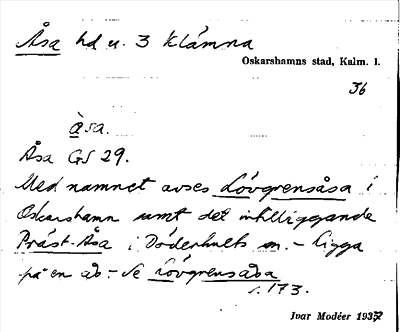 Åsa hd u. 3 Klämna
Oskarshamns stad, Kalm. l.
36
àsa.
Åsa GS 29.
Med namnet avses Lövgrensåsa i
Oskarshamn samt det intilliggande
Präst-Åsa i Döderhults sn. – Ligga
på en ås – Se Lövgrensåsa
s. 173.
Ivar Modéer 1937